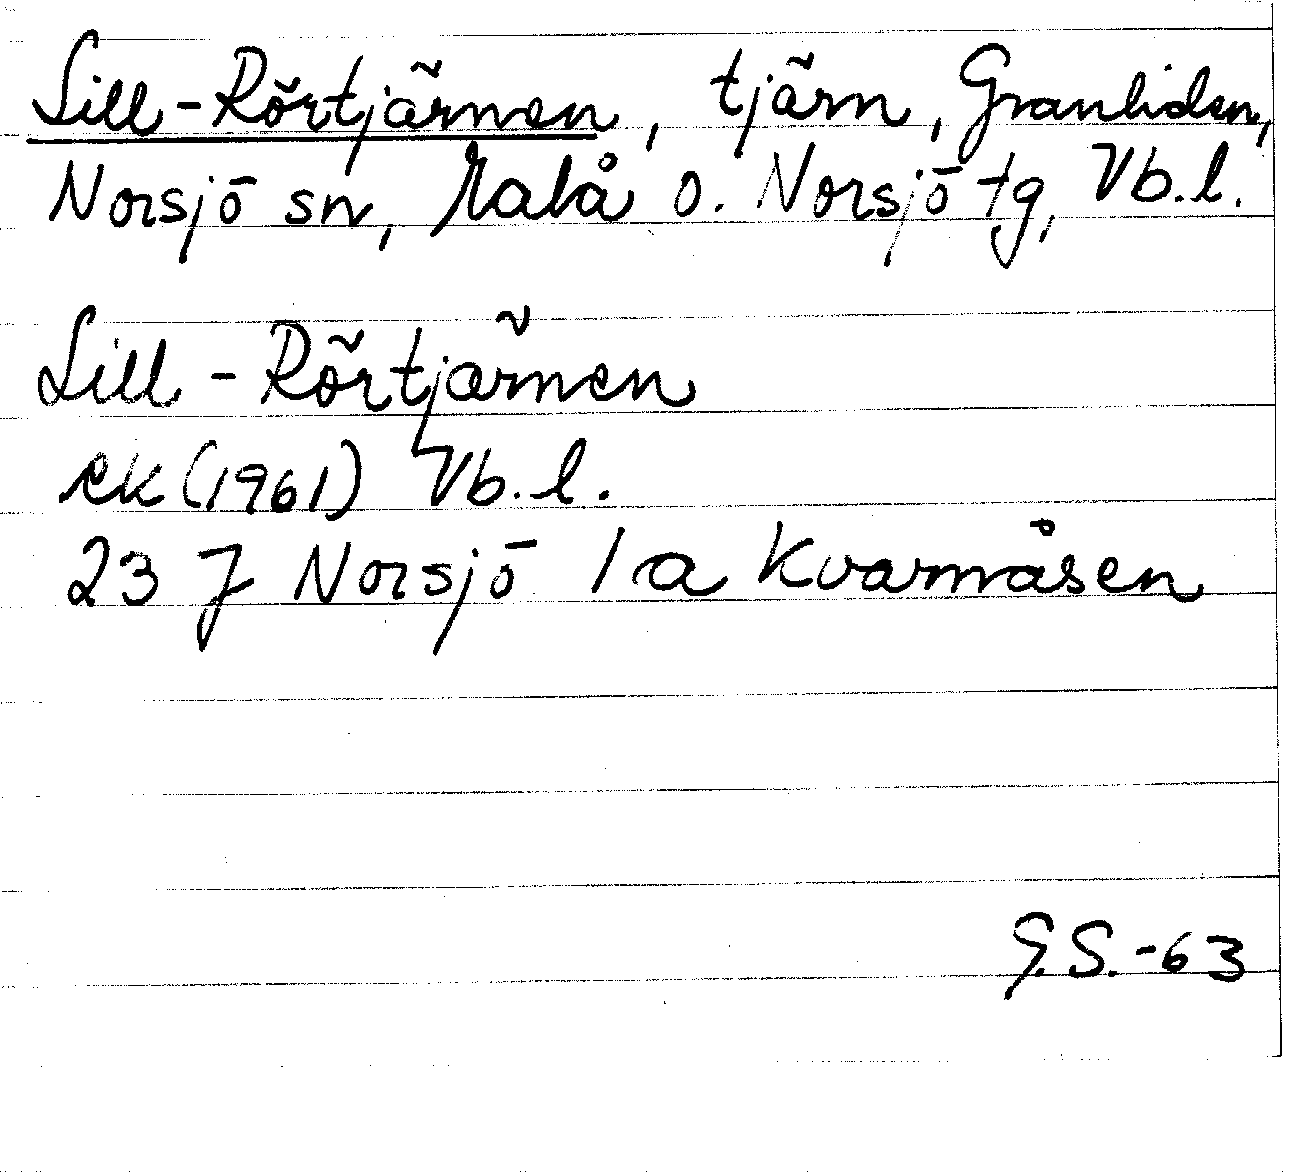 Lill-Rörtjärnen, tjärn, Granliden,
Norsjö sn, Malå o. Norsjö tg, Vb.l.
Lill-Rörtjärnen
ek (1961) Vb.l.
23 J Norsjö 1a Kvarnåsen
G.S.-63